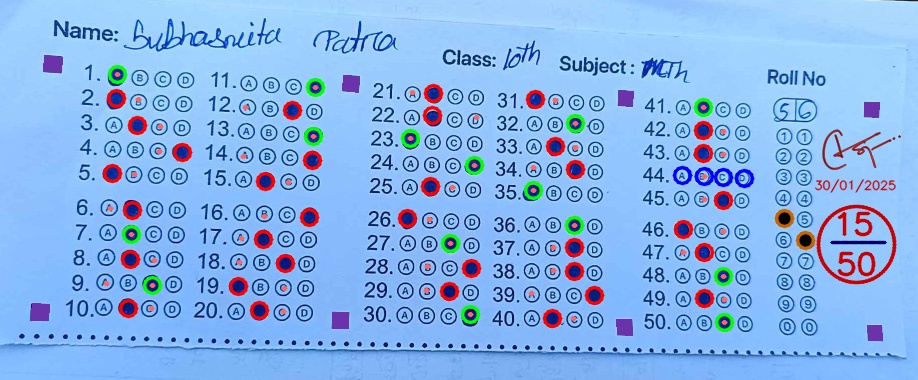 Name: Subhasmita Patra
Class: 10th Subject: MTH
Roll No
56
1. A B C D
2. A B C D
3. A B C D
4. A B C D
5. A B C D
6. A B C D
7. A B C D
8. A B C D
9. A B C D
10. A B C D
11. A B C D
12. A B C D
13. A B C D
14. A B C D
15. A B C D
16. A B C D
17. A B C D
18. A B C D
19. A B C D
20. A B C D
21. A B C D
22. A B C D
23. A B C D
24. A B C D
25. A B C D
26. A B C D
27. A B C D
28. A B C D
29. A B C D
30. A B C D
31. A B C D
32. A B C D
33. A B C D
34. A B C D
35. A B C D
36. A B C D
37. A B C D
38. A B C D
39. A B C D
40. A B C D
41. A B C D
42. A B C D
43. A B C D
44. A B C D
45. A B C D
46. A B C D
47. A B C D
48. A B C D
49. A B C D
50. A B C D
1 1
2 2
3 3
4 4
5
6
7 7
8 8
9 9
0 0
30/01/2025
15
50